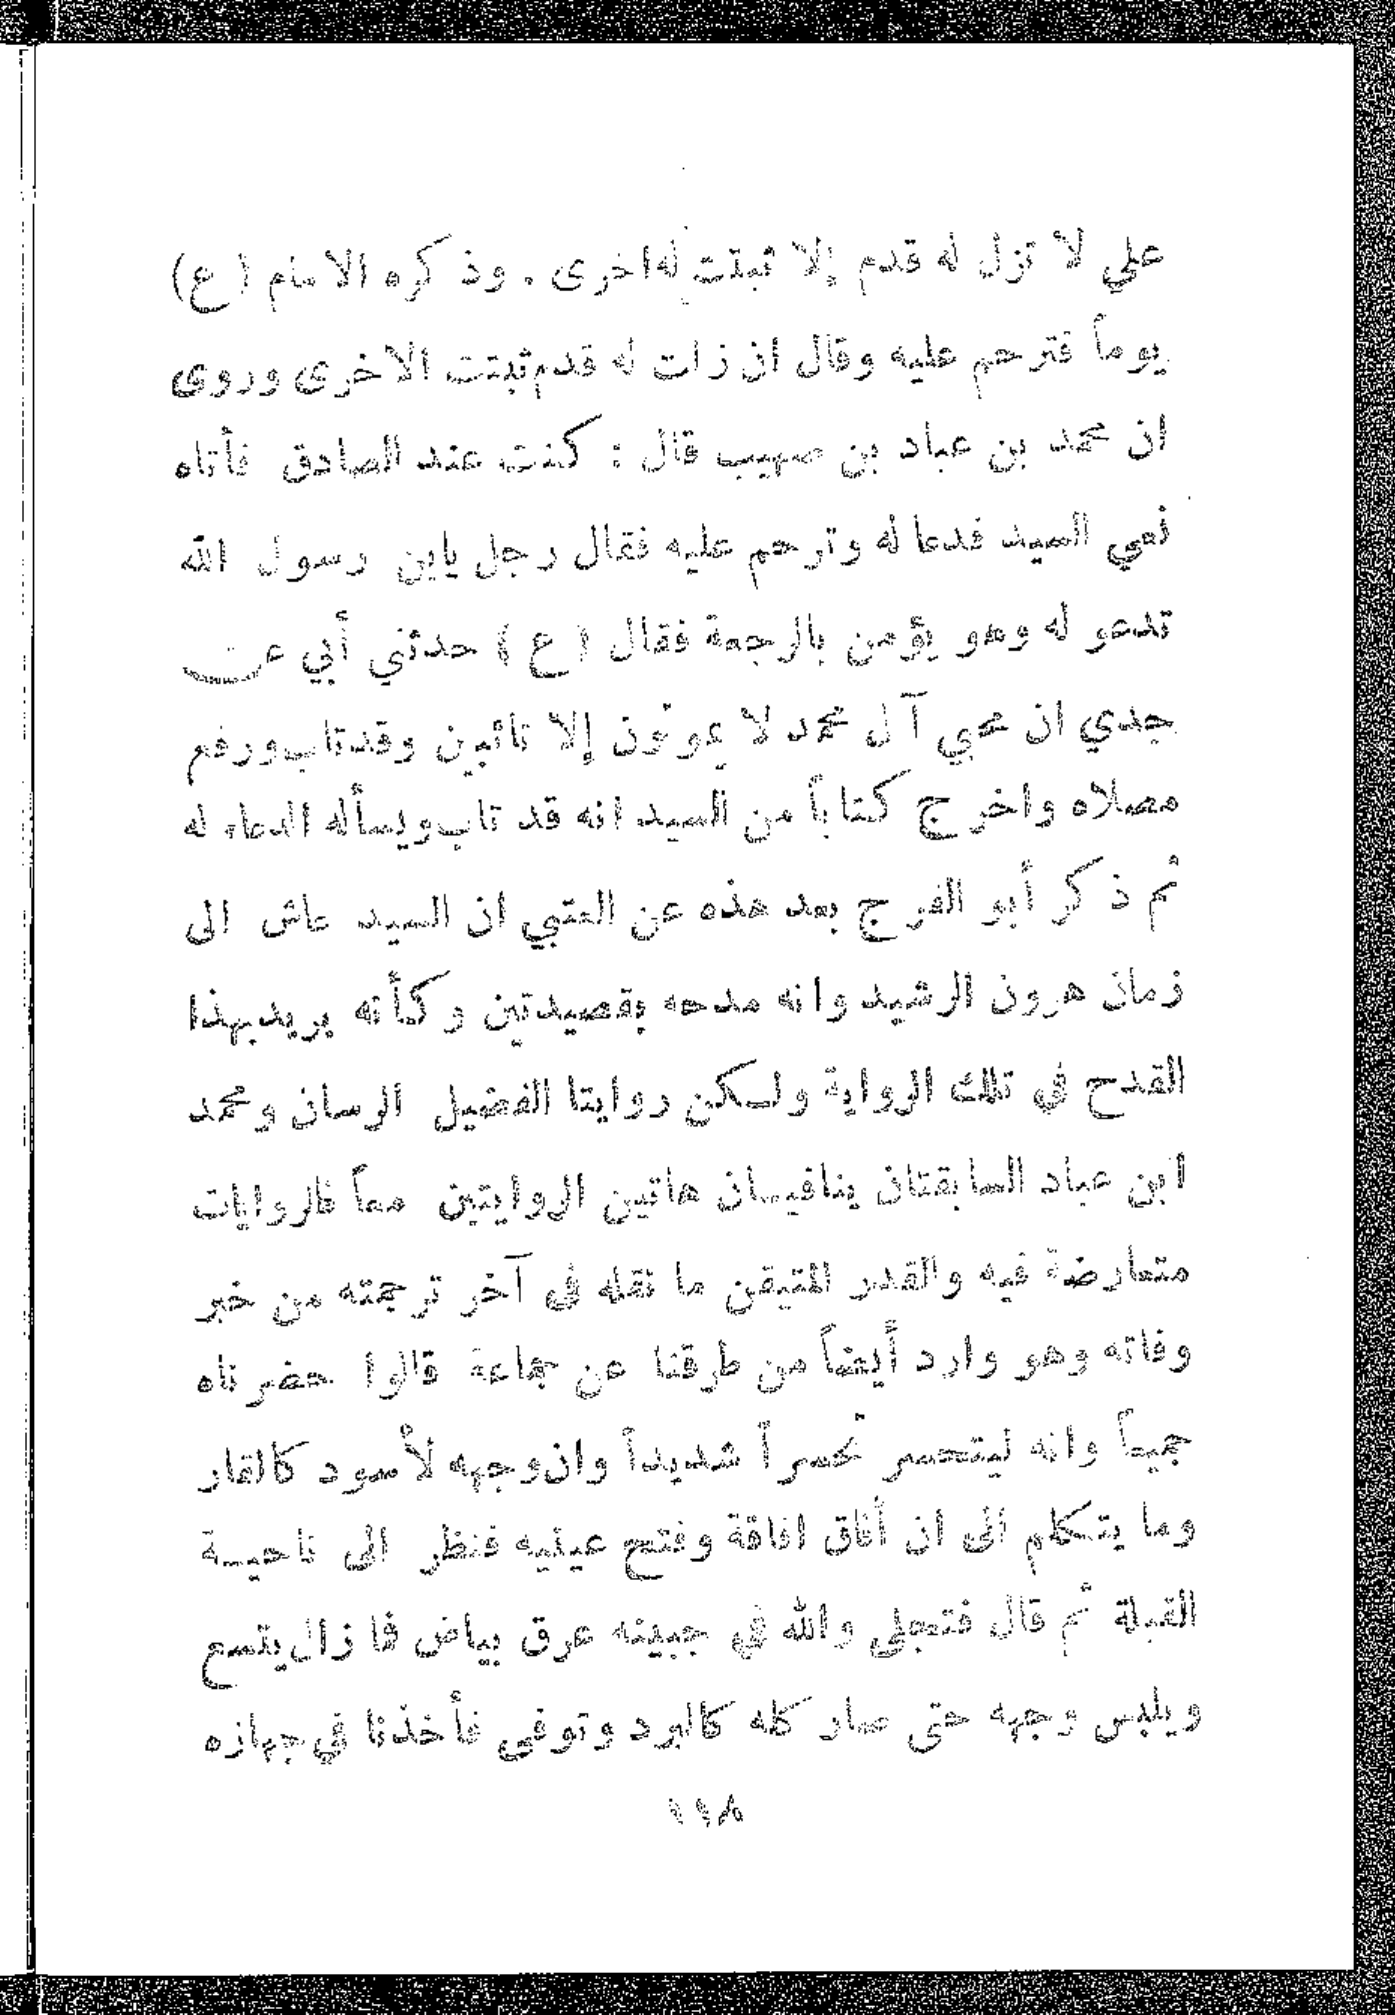 علي لا تزل له قدم إلا ثبتت له اخرى . وذكره الامام (ع)
يوماً فترحم عليه وقال ان زلت له قدم ثبتت الاخرى وروى
ان محمد بن عباد بن صهيب قال : كنت عند الصادق فأتاه
نعي السيد فدعا له وترحم عليه فقال رجل يابن رسول الله
تدعو له وهو يؤمن بالرجعة فقال (ع) حدثني أبي عن
جدي ان محبي آل محمد لا يموتون إلا تائبين وقد تاب ورفع
مصلاه واخرج كتاباً من السيد انه قد تاب ويسأله الدعاء له
ثم ذكر أبو الفرج بعد هذه عن العتبي ان السيد عاش الى
زمان هرون الرشيد وانه مدحه بقصيدتين وكأنه يريد بهذا
القدح في تلك الرواية ولكن روايتا الفضيل الرسان ومحمد
ابن عباد السابقتان ينافيان هاتين الروايتين معاً فالروايات
متعارضة فيه والقدر المتيقن ما نقله في آخر ترجمته من خبر
وفاته وهو وارد أيضاً من طرقنا عن جماعة قالوا حضرناه
جميعاً وانه ليتحسر تحسراً شديداً وان وجهه لأسود كالقار
وما يتكلم الى ان أفاق افاقة وفتح عينيه فنظر الى ناحية
القبلة ثم قال فتجلى والله في جبينه عرق بياض فما زال يتسع
ويلبس وجهه حتى صار كله كالبرد وتوفي فأخذنا في جهازه
١١٨